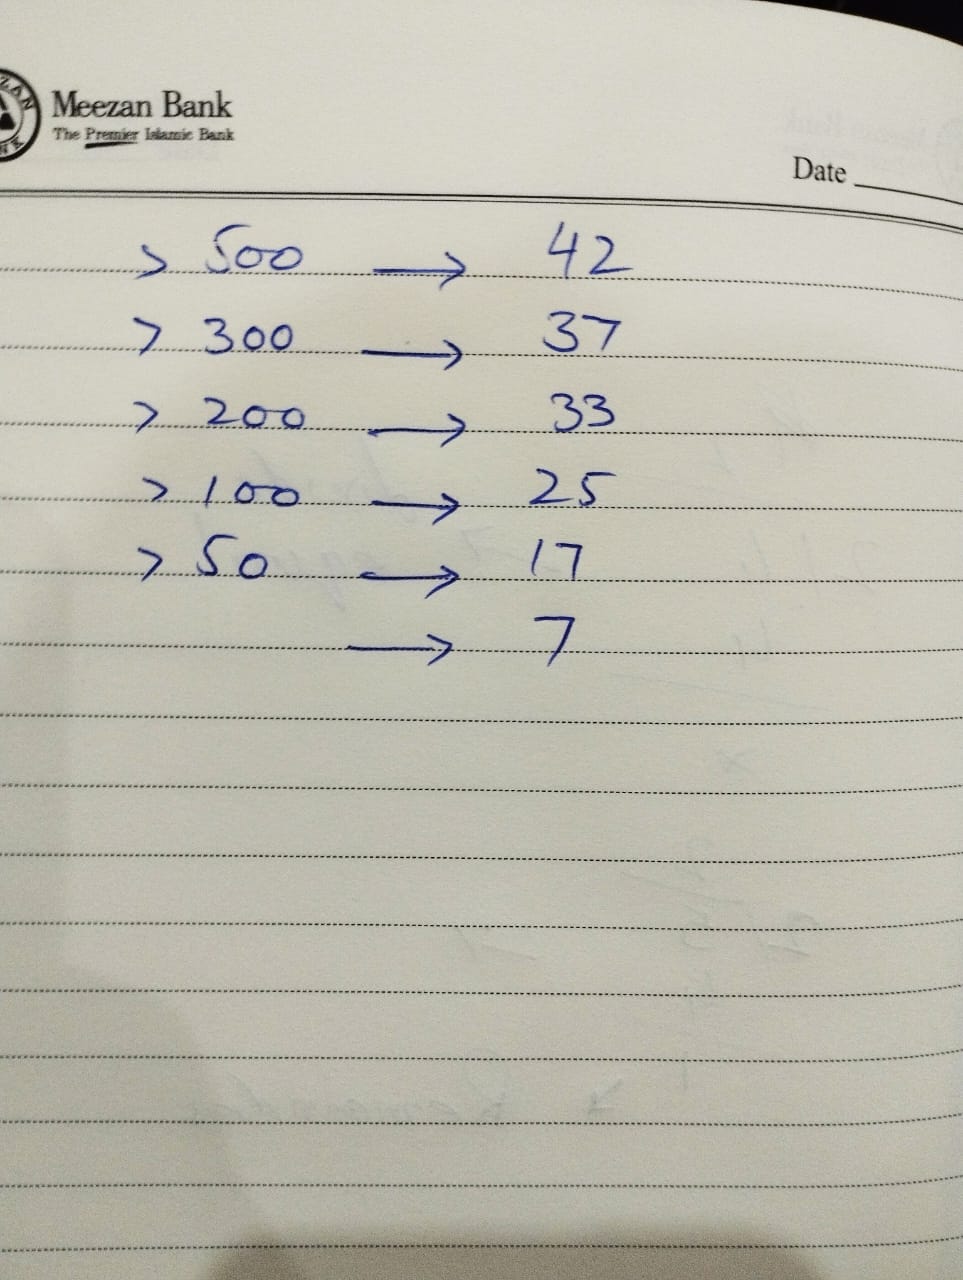 Meezan Bank
The Premier Islamic Bank
Date
> 500 → 42
> 300 → 37
> 200 → 33
> 100 → 25
> 50 → 17
→ 7